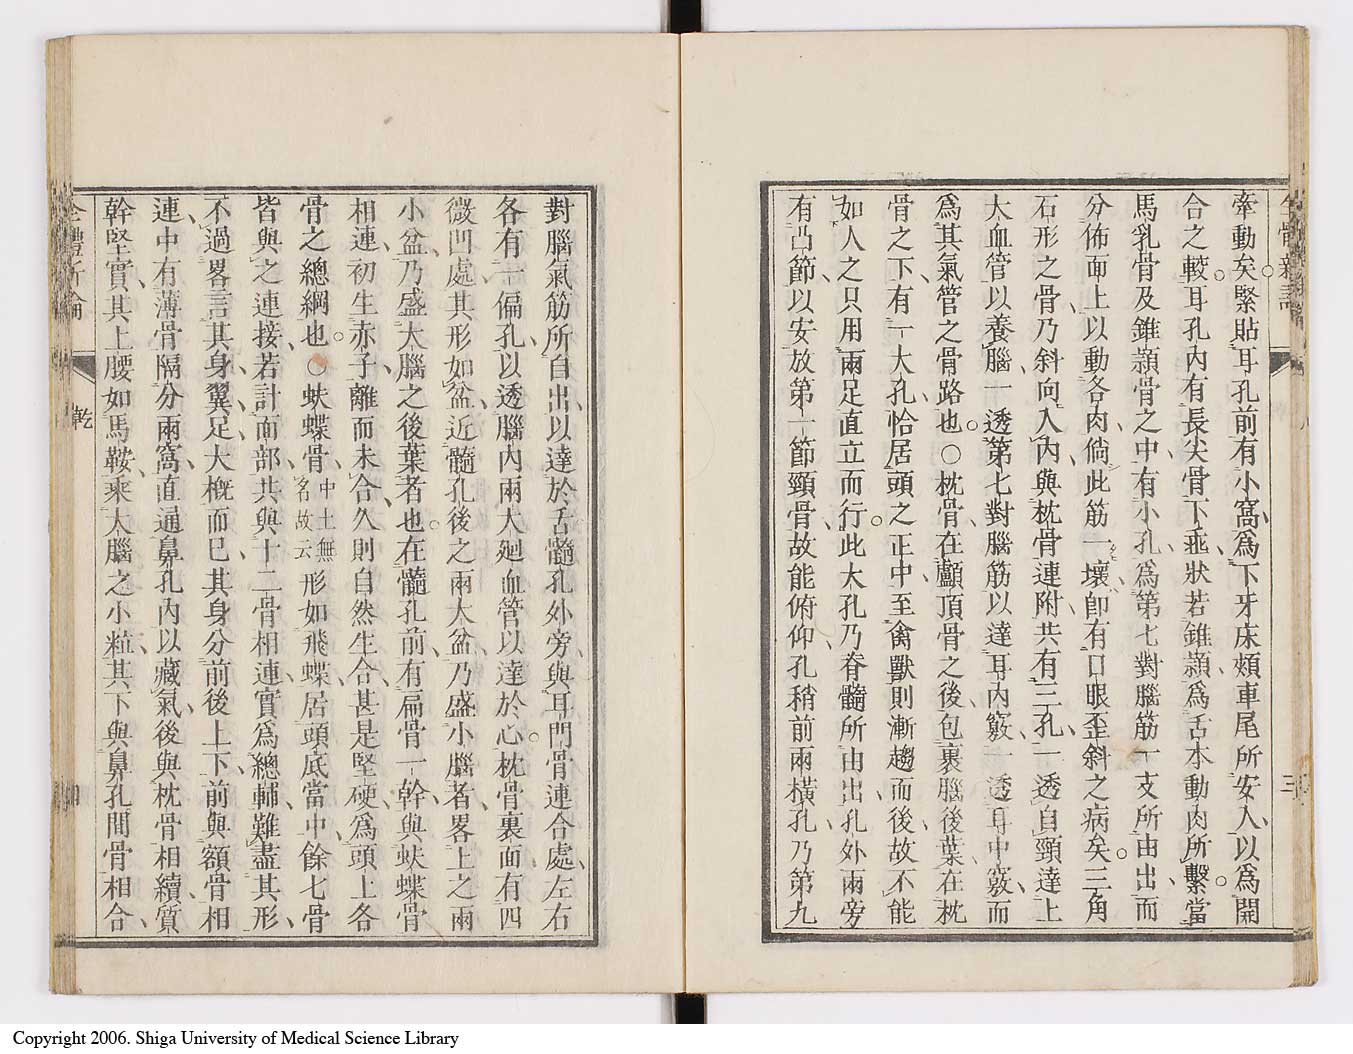 牽動矣緊貼耳孔前有小窩爲下牙床頰車尾所安入以爲開
合之轂耳孔內有長尖骨下乖狀若錐顙爲舌本動肉所繫當
馬乳骨及錐顙骨之中有小孔爲第七對腦筋一支所由出而
分佈面上以動各肉倘此筋一壞卽有口眼歪斜之病矣三角
石形之骨乃斜向入內與枕骨連附共有三孔一透自頸達上
大血管以養腦一透第七對腦筋以達耳內竅一透耳中竅而
爲其氣管之骨路也○枕骨在顱頂骨之後包裹腦後葉在枕
骨之下有一大孔恰居頭之正中至禽獸則漸趨而後故不能
如人之只用兩足直立而行此大孔乃脊髓所由出孔外兩旁
有凸節以安放第一節頸骨故能俯仰孔稍前兩橫孔乃第九
對腦氣筋所自出以達於舌髓孔外旁與耳門骨連合處左右
各有一偏孔以透腦內兩大廻血管以達於心枕骨裏面有四
微凹處其形如盆近髓孔後之兩大盆乃盛小腦者畧上之兩
小盆乃盛大腦之後葉者也在髓孔前有扁骨一幹與蚨蝶骨
相連初生赤子離而未合久則自然生合甚是堅硬爲頭上各
骨之總綱也○蚨蝶骨中土無名故云形如飛蝶居頭底當中餘七骨
皆與之連接若計面部共與十二骨相連實爲總輔難盡其形
不過畧言其身翼足大槪而已其身分前後上下前與額骨相
連中有薄骨隔分兩窩直通鼻孔內以藏氣後與枕骨相續質
幹堅實其上腰如馬鞍乘大腦之小粒其下與鼻孔間骨相合
全體新論
乾
Copyright 2006. Shiga University of Medical Science Library